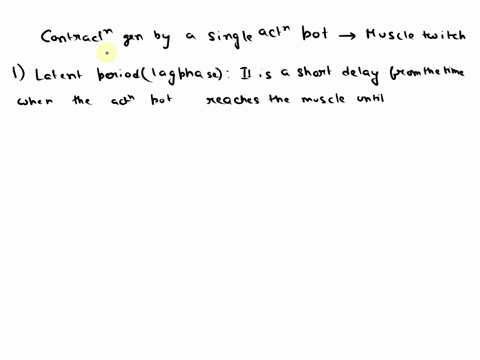 Contractⁿ gen by a single actⁿ pot → Muscle twitch
1) Latent period (lag phase): It is a short delay from the time
when the actⁿ pot reaches the muscle until